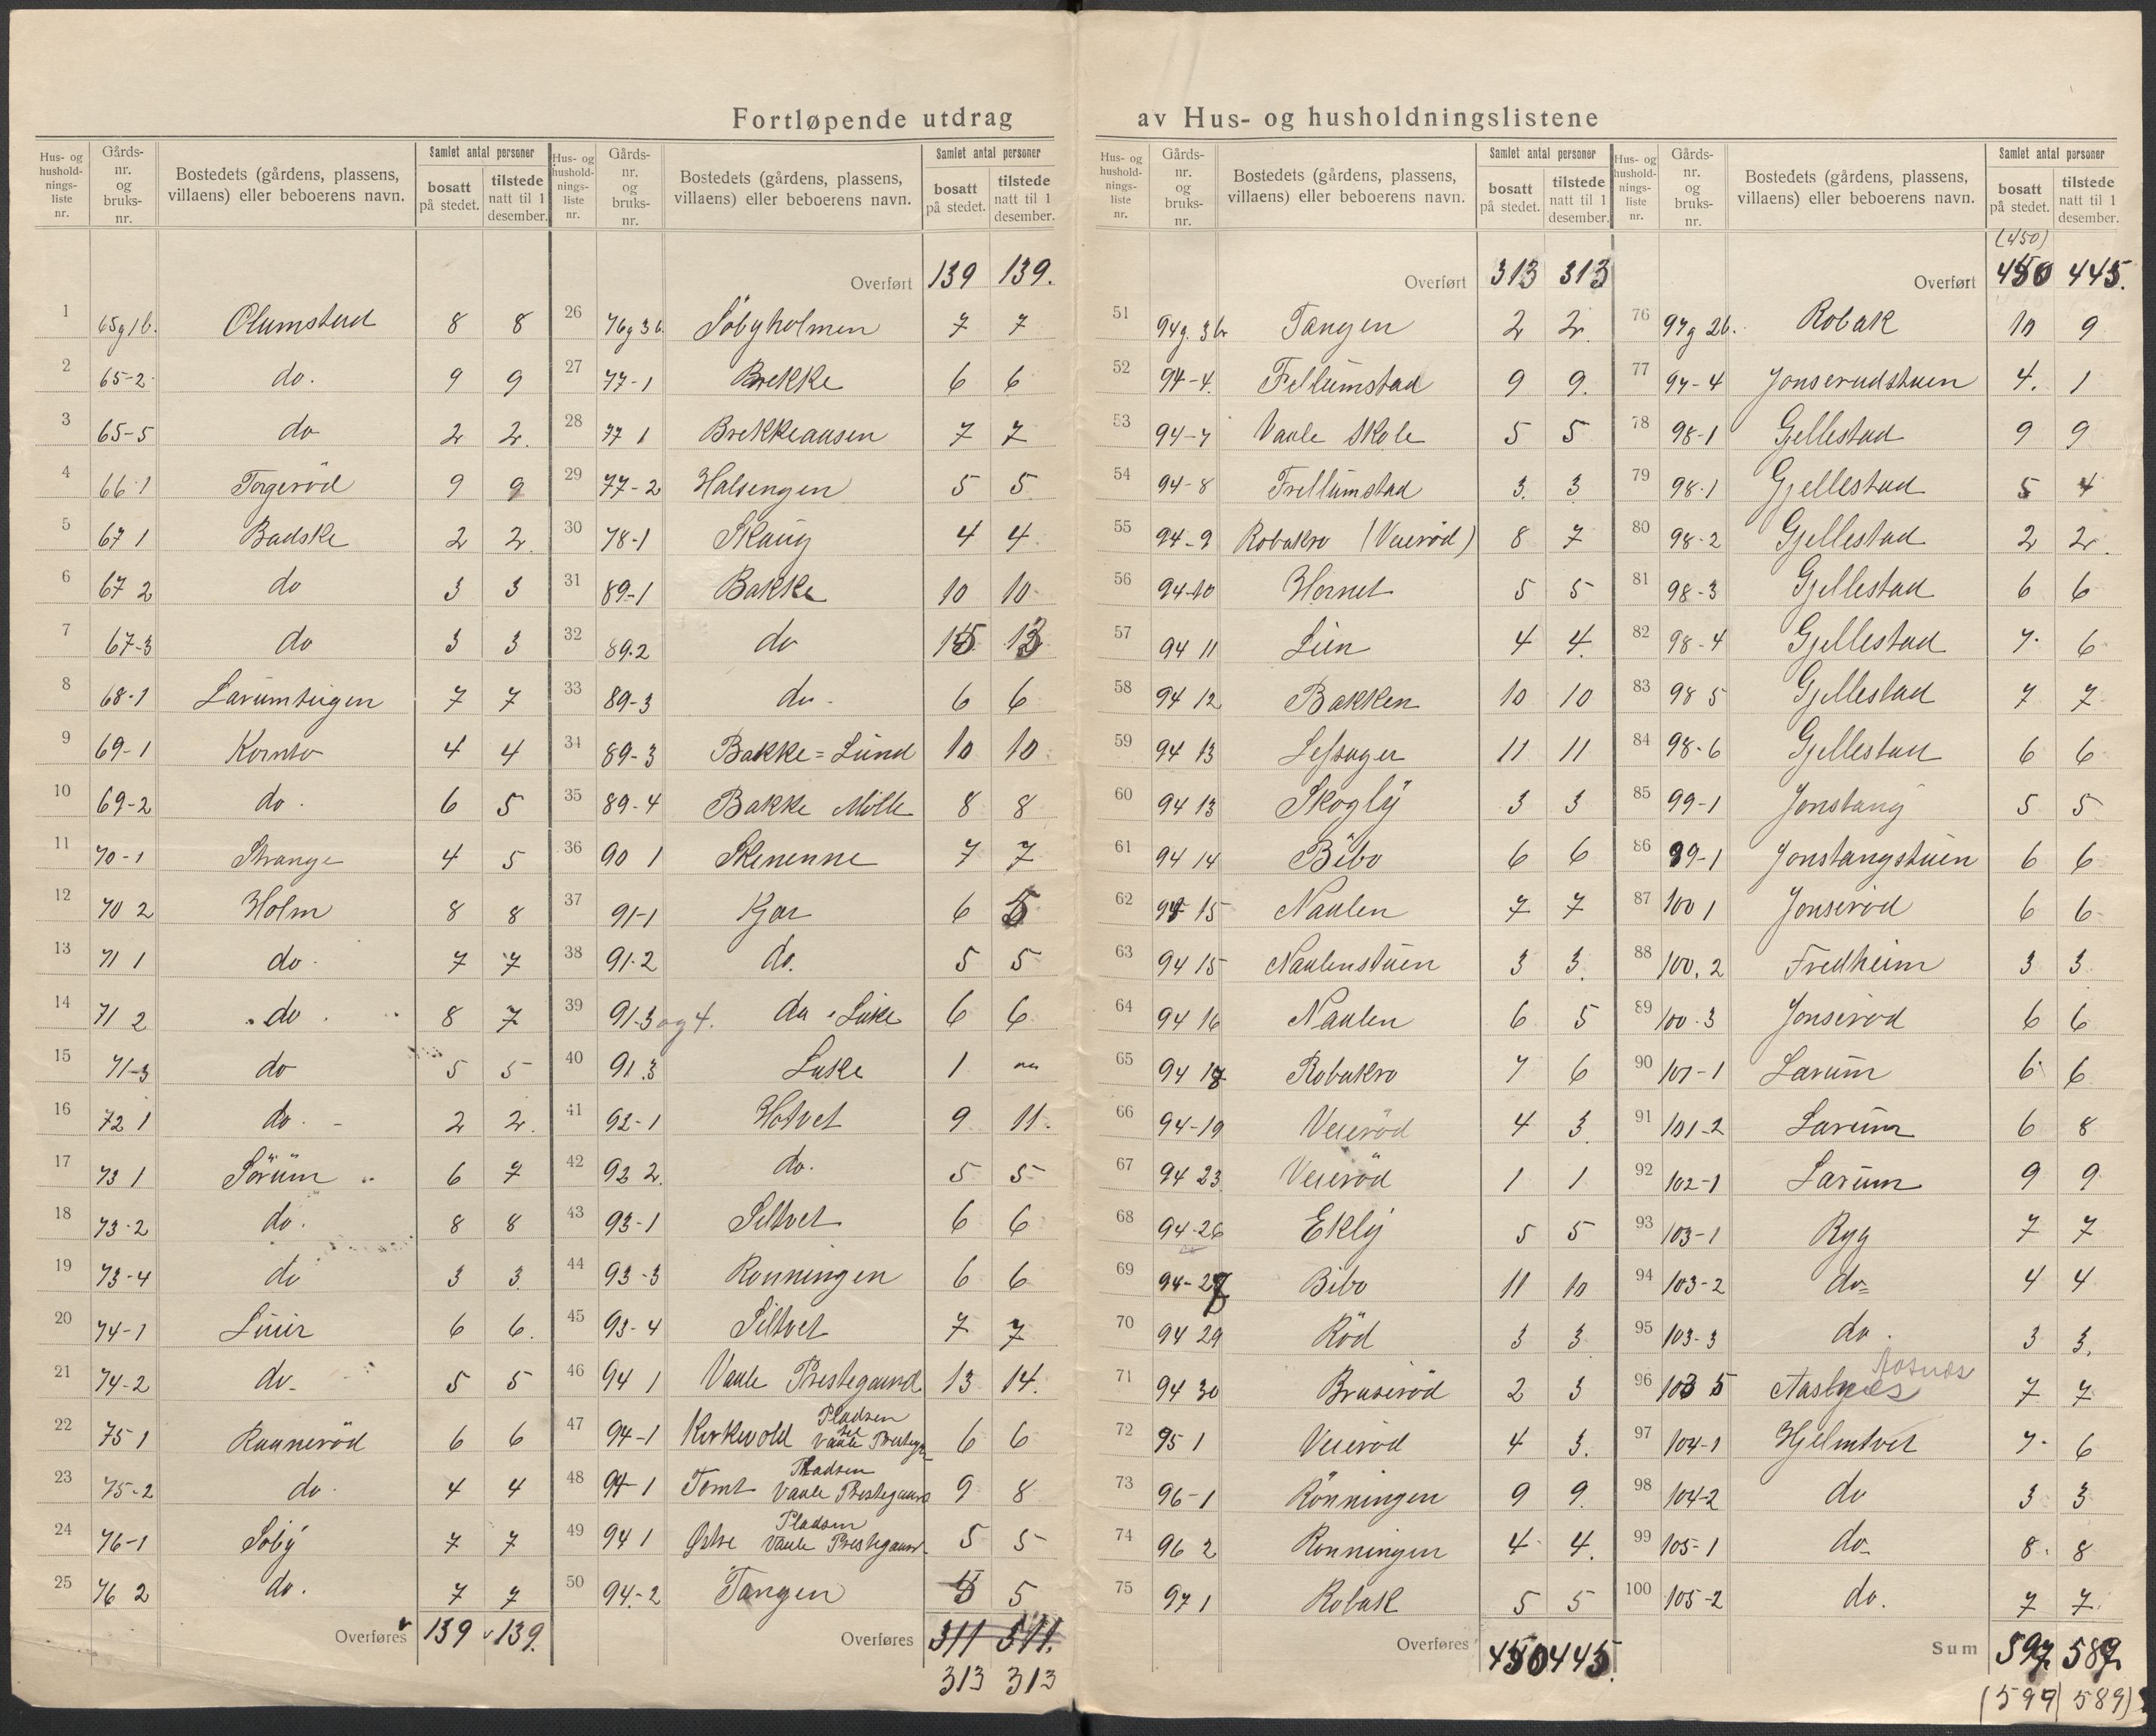 Fortløpende utdrag av Hus- og husholdningslistene
Hus- og husholdningsliste nr. Gårds-nr. og bruks-nr. Bostedets (gårdens, plassens, villaens) eller beboerens navn. Samlet antal personer bosatt på stedet. tilstede natt til 1 desember.
1 65g 1b. Olumstad 8 8
2 65-2 do. 9 9
3 65-5 do 2 2.
4 66 1 Torgerød 9 9
5 67 1 Badske 2 2.
6 67 2 do 3 3
7 67-3 do 3 3
8 68-1 Larumteigen 7 7
9 69-1 Kornto 4 4
10 69-2 do. 6 5
11 70-1 Strange 4 5
12 70 2 Holm 8 8
13 71 1 do 7 7
14 71 2 do 8 7
15 71-3 do 5 5
16 72 1 do. 2 2.
17 73 1 Sörum 6 7
18 73-2 do. 8 8
19 73-4 do 3 3.
20 74-1 Linir 6 6.
21 74-2 do. 5 5
22 75 1 Rannerød 6 6
23 75-2 do 4 4
24 76-1 Söby 7 7
25 76 2 do. 7 7
Overføres 139 139.
Hus- og husholdningsliste nr. Gårds-nr. og bruks-nr. Bostedets (gårdens, plassens, villaens) eller beboerens navn. Samlet antal personer bosatt på stedet. tilstede natt til 1 desember.
Overført 139 139.
26 76g 3b Söbyholmen 7 7
27 77-1 Brekke 6 6
28 77 1 Brekkeaasen 7 7
29 77-2 Halsengen 5 5
30 78-1 Skaug 4 4
31 89-1 Bakke 10 10
32 89.2 do 15 13
33 89-3 do 6 6
34 89-3 Bakke=Lund 10 10
35 89-4 Bakke Mölle 8 8
36 90 1 Skenenne 7 7
37 91-1 Kjær 6 5
38 91.2 do. 5 5
39 91-3 og 4. do Luke 6 6
40 91.3 Luke 1
41 92-1 Hotvet 9 11.
42 92 2. do. 5 5
43 93-1 Siltvet 6 6
44 93-3 Rønningen 6 6
45 93-4 Siltvet 7 7
46 94 1 Vaale Prestegaard 13 14.
47 94-1 Kirkevold Pladsen Vaale Prestegr 6 6
48 94-1 Tomt Pladsen Vaale Prestegaard 9 8
49 94 1 Østre Pladsen Vaale Prestegaard 5 5
50 94.-2 Tangen 5 5
Overføres 311 311.
313 313
Hus- og husholdningsliste nr. Gårds-nr. og bruks-nr. Bostedets (gårdens, plassens, villaens) eller beboerens navn. Samlet antal personer bosatt på stedet. tilstede natt til 1 desember.
Overført 313 313
51 94g. 3b Tangen 2 2.
52 94-4. Fellumstad 9 9.
53 94-7 Vaale Skole 5 5
54 94-8 Frellumstad 3. 3
55 94-9 Robakro (Veierød) 8 7
56 94-10 Hornet 5 5
57 94 11 Lien 4 4.
58 94 12 Bakken 10 10
59 94 13 Lefsager 11 11
60 94 13 Skogly 3 3
61 94 14 Bibo 6 6
62 94 15 Naulen 7 7
63 94 15 Naulenstuen 3 3.
64 94 16 Naulen 6 5
65 94 18 Robakro 7 6
66 94-19 Veierød 4 3.
67 94 23 Veierød 1 1
68 94-26 Ekly 5 5
69 94-27 Bibo 11 10
70 94 29 Rød 3 3
71 94 30 Bruserød 2 3
72 95 1 Veierød 4 3.
73 96-1 Rønningen 9 9.
74 96 2 Rønningen 4 4.
75 97 1 Robak 5 5
Overføres 450 445.
Hus- og husholdningsliste nr. Gårds-nr. og bruks-nr. Bostedets (gårdens, plassens, villaens) eller beboerens navn. Samlet antal personer bosatt på stedet. tilstede natt til 1 desember.
(450)
Overført 450 445.
76 97g 2b. Robak 10 9
77 97-4 Jonserudstuen 4. 1
78 98-1 Gjellestad 9 9
79 98-1 Gjellestad 5 4
80 98-2 Gjellestad 2 2.
81 98-3 Gjellestad 6 6
82 98-4 Gjellestad 7. 6
83 98 5 Gjellestad 7 7
84 98-6 Gjellestad 6 6
85 99-1 Jonstang 5 5
86 99-1 Jonstangstuen 6 6
87 100 1 Jonserød 6 6
88 100.2 Fredheim 3 3
89 100.3 Jonserød 6 6
90 101-1 Larum 6 6
91 101-2 Larum 6 8
92 102-1 Larum 9 9
93 103-1 Ryg 7 7
94 103-2 do 4 4
95 103-3 do. 3 3.
Aasnæs
96 103 5 Aaslynæs 7 7
97 104-1 Hjelmtvet 7. 6
98 104-2 do 3 3
99 105-1 do 8. 8
100 105-2 do. 7 7.
Sum 597 587
(599 589)